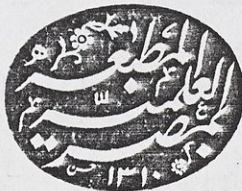 المطبعة
العلمية
بمصر
١٣١٠